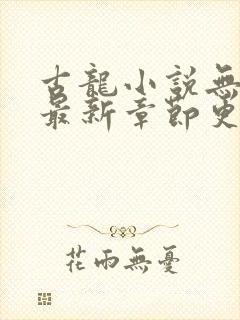 古龍小說無
最新章節更
花雨無憂